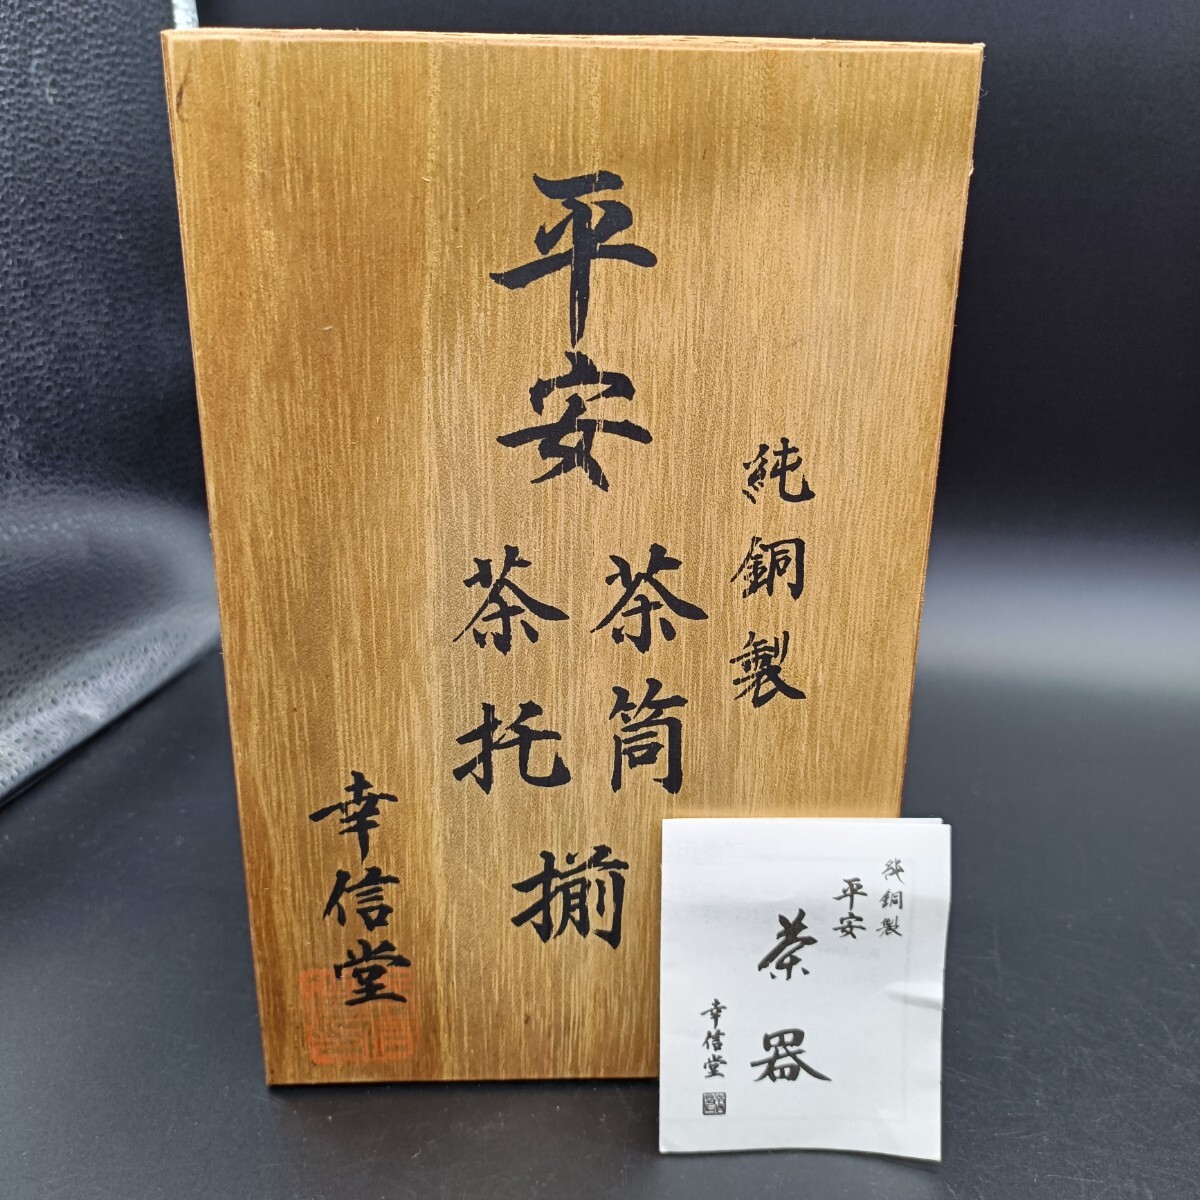 純銅製
平安
茶筒
茶托
揃
幸信堂
純銅製
平安
茶器
幸信堂